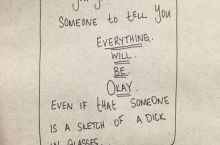 SOMEONE TO TELL YOU
EVERYTHING.
WILL.
BE.
OKAY.
EVEN IF THAT SOMEONE
IS A SKETCH OF A DICK
IN GLASSES.